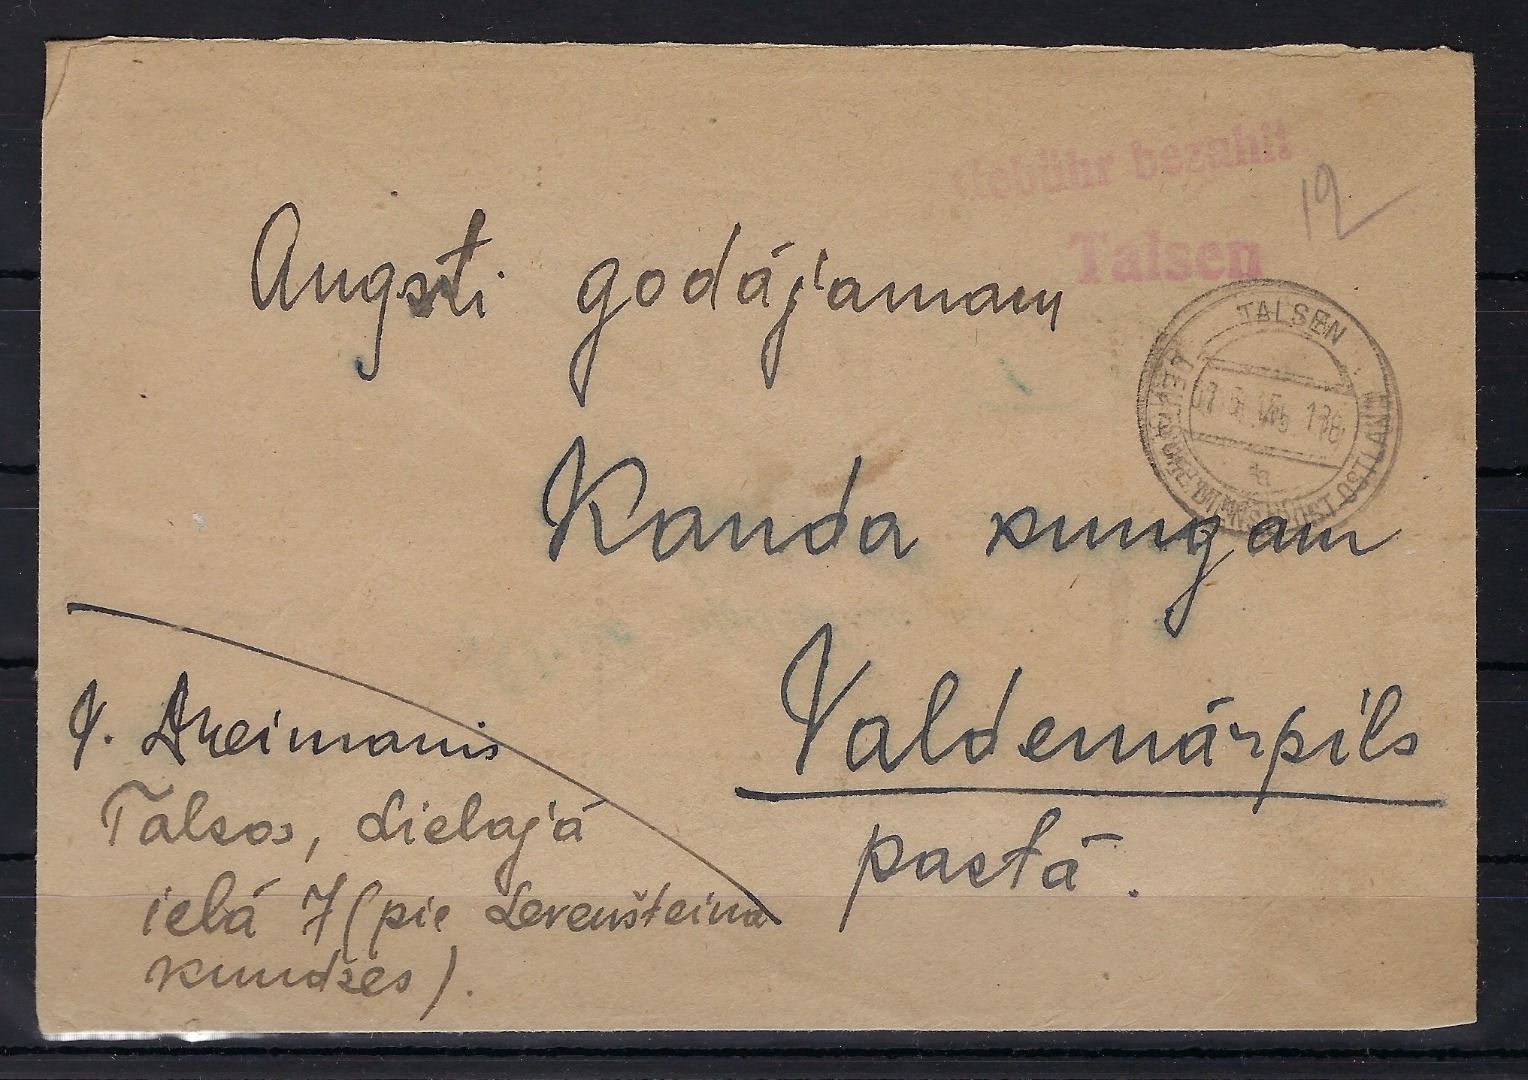 Gebühr bezahlt
12
Talsen
TALSEN
DEUTSCHE DIENSTPOST OSTLAND
a
Augsti godājamam
Kanda kungam
Valdemārpils
pastā.
Dreimanis
Talsos, Lielajā
ielā 7 (pie Levenšteina
kundzes).